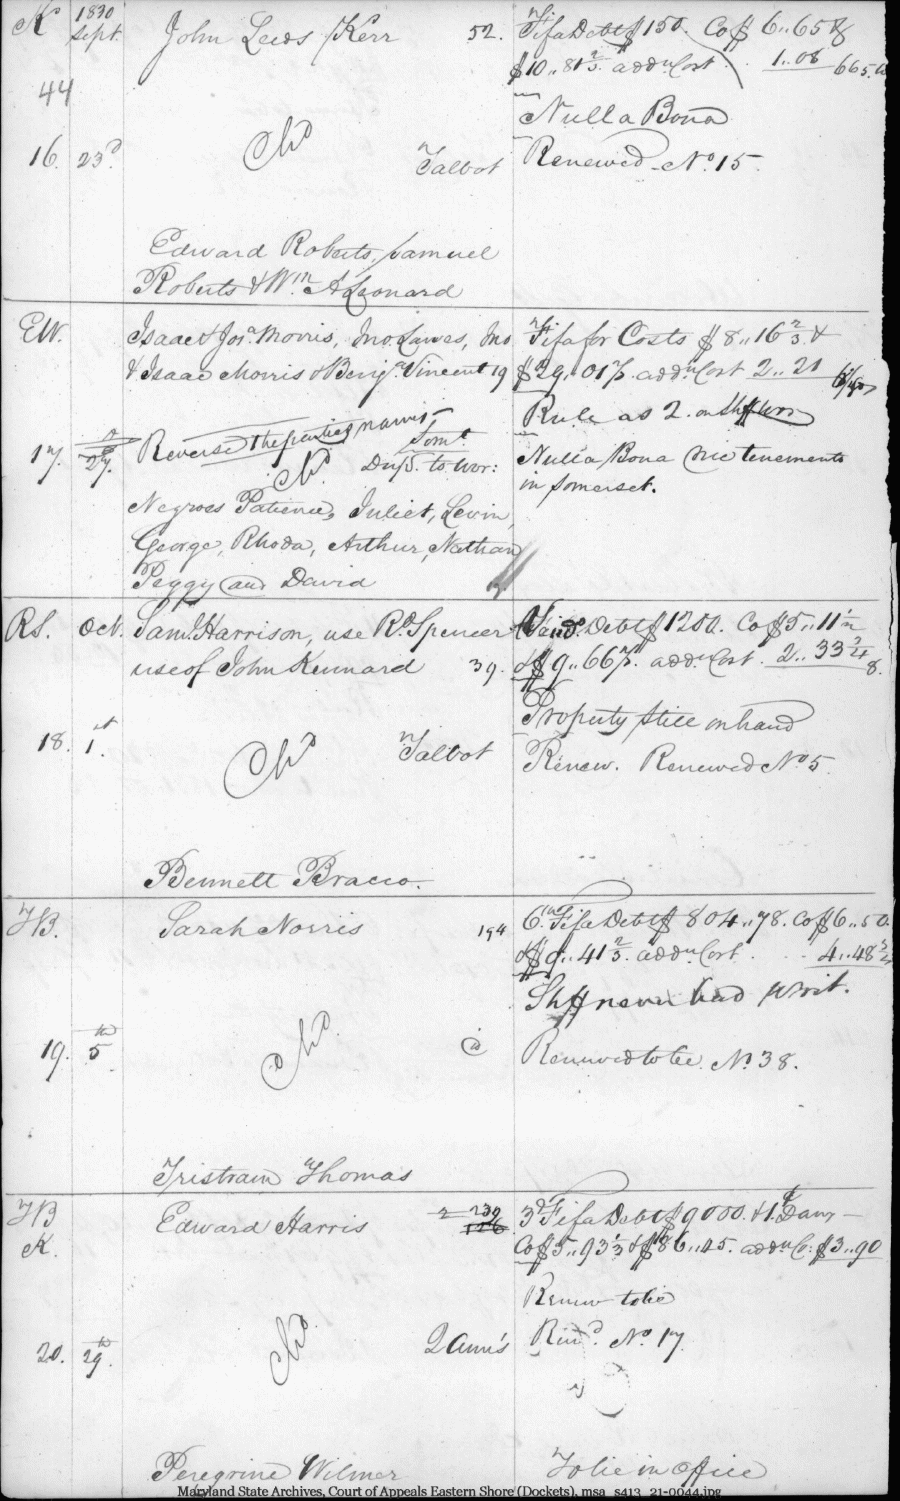 K 1830 Sept. John Leeds Kerr 52. Fifa Debt $150. Co $6..65 8
$10..81 2/3. addn Cost 1..08
44
Nulla Bona
16. 23d Chs Talbot Renewed No. 15
Edward Roberts, Samuel
Roberts & Wm A Leonard
EW. Isaac & Jos. Morris, Jno Lawes, Jno Fifa for Costs $8..16 2/3 &
& Isaac Morris & Benja Vincent 19 $29..01 addn Cost 2..21
Reverse the parties names Rule as 2. on Shff Wor
17. 27. Chs Somt Dup. to Wor: Nulla Bona nic tenements
in Somerset.
Negroes Patience, Juliet, Levin,
George, Rhoda, Arthur, Nathan
Peggy and David
RS. Oct. Saml Harrison, use Rd Spencer Vando. Debt $1250. Co $5..11
use of John Kennard 39. & $9..66 addn Cost. 2..33 3/4
Property still on hand
18. 1st Chs Talbot Renew. Renewed No 5
Bennett Bracco.
TB. Sarah Norris 194 6th Fifa Debt $804..78. Co $6..50.
& $9..41 2/3. addn Cost 4..48 3/4
Shff never had writ.
19. 5th Chs Renewed to lie No. 38.
Tristram Thomas
TB Edward Harris 239 126 3d Fifa Debt $9000. & 1d Dam
K. Co $5..93 1/3 & $86..45. addn Co: $3..90
Renew to lie
20. 29th Chs 2 Ann's Rend. No 17
Peregrine Wilmer To lie in office
Maryland State Archives, Court of Appeals Eastern Shore (Dockets), msa_s413_21-0044.jpg